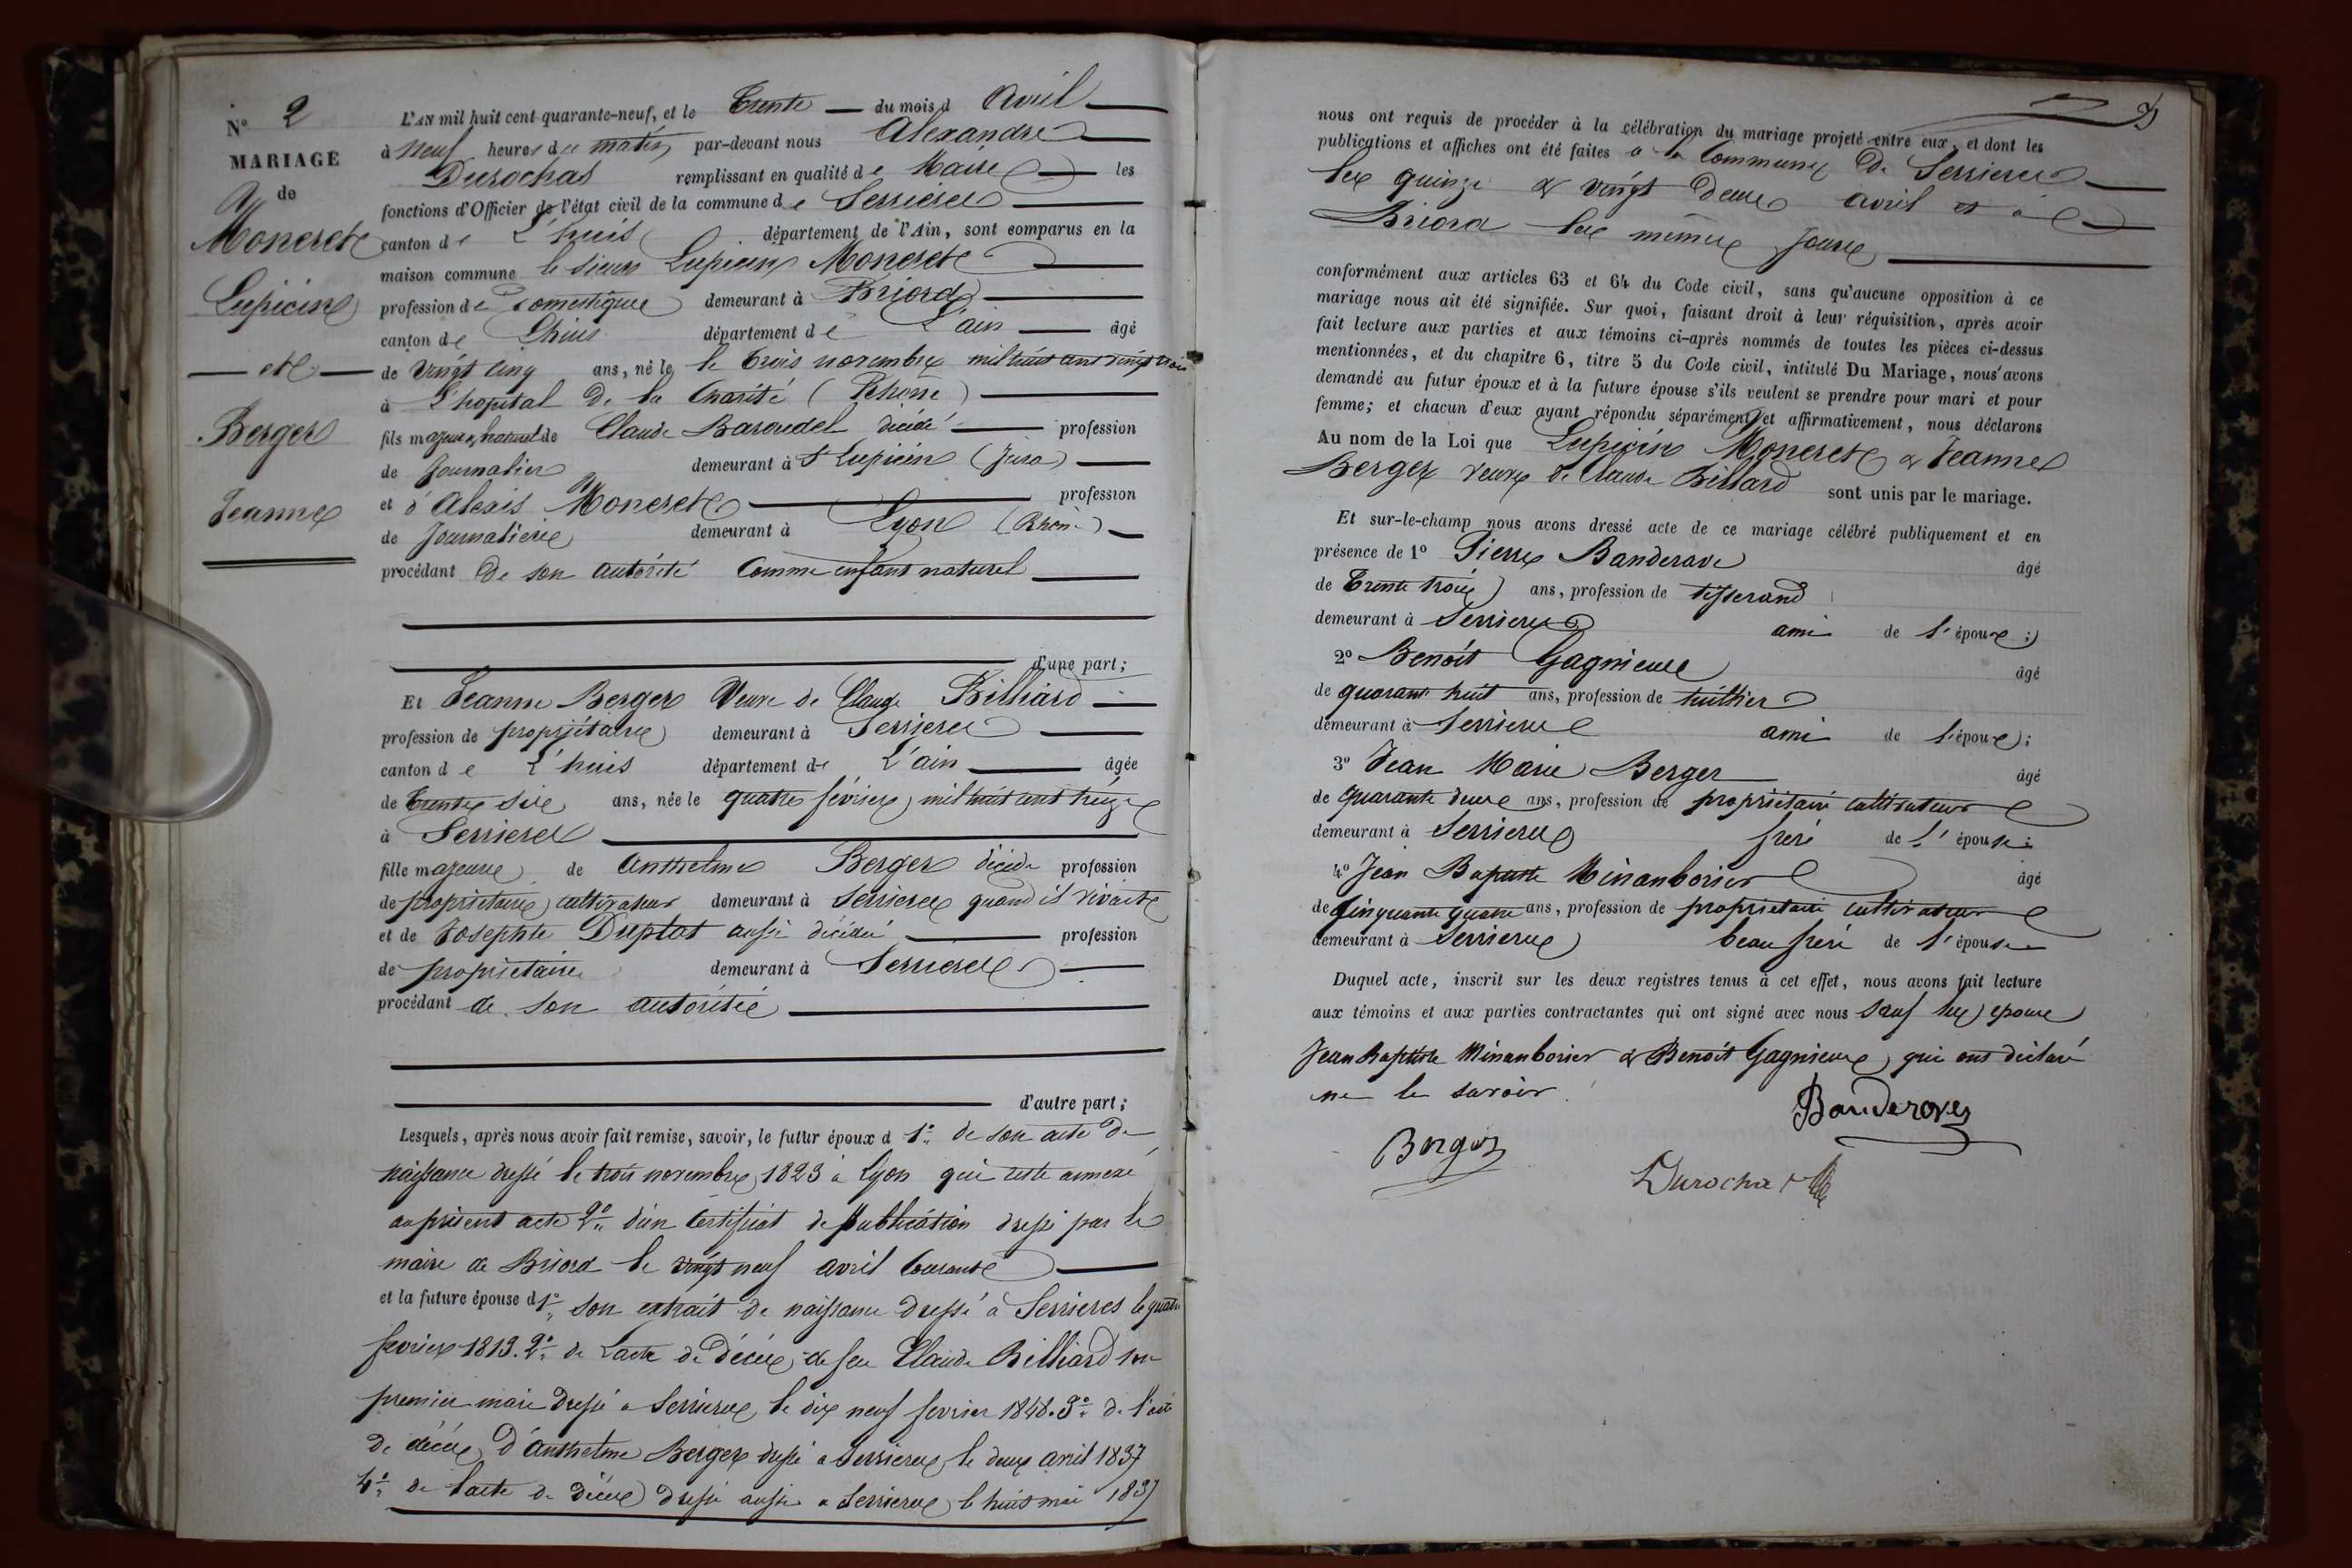 N° 2
MARIAGE
de
Moneret
Lupicin
et
Berger
Jeanne
L'AN mil huit cent quarante-neuf, et le Trente du mois d avril
à neuf heures du matin par-devant nous Alexandre
Durochas remplissant en qualité de Maire les
fonctions d'Officier de l'état civil de la commune de Serrieres
canton de L'huis département de l'Ain, sont comparus en la
maison commune le sieur Lupicin Moneret
profession de Domestique demeurant à Briord
canton de Lhuis département de L'ain âgé
de vingt cinq ans, né le le trois novembre mil huit cent vingt trois
à L'hopital de la Charité (Rhône)
fils majeur, naturel de Claude Baroudel décédé profession
de Journalier demeurant à St Lupicin (Jura)
et d'Alexis Moneret profession
de Journaliere demeurant à Lyon (Rhône)
procédant de son autorité comme enfant naturel
d'une part;
Et Jeanne Berger Veuve de Claude Billiard
profession de propriétaire demeurant à Serrieres
canton de L'huis département de L'ain âgée
de Trente six ans, née le quatre février mil huit cent treize
à Serrieres
fille majeure de Anthelme Berger décédé profession
de propriétaire cultivateur demeurant à Serrieres quand il vivait
et de Josephte Duplat aussi décédée profession
de propriétaire demeurant à Serrieres
procédant de son autorité
d'autre part;
Lesquels, après nous avoir fait remise, savoir, le futur époux d 1° de son acte de
naissance dressé le trois novembre 1823 à Lyon qui reste annexé
au présent acte 2° d'un certificat de publication dressé par le
maire de Briord le vingt neuf avril courant
et la future épouse d 1° son extrait de naissance dressé à Serrieres le quatre
fevrier 1813. 2° de l'acte de décès de feu Claude Billiard son
premier mari dressé a Serrieres le dix neuf fevrier 1848. 3° de l'acte
de décès d'Anthelme Berger dressé a Serrieres le deux avril 1837
4° de l'acte de décès dressé aussi a Serrieres le huit mai 1837
nous ont requis de procéder à la célébration du mariage projeté entre eux, et dont les
publications et affiches ont été faites a la Commune de Serrieres
les quinze & vingt deux avril et à
Briord les mêmes jours
conformément aux articles 63 et 64 du Code civil, sans qu'aucune opposition à ce
mariage nous ait été signifiée. Sur quoi, faisant droit à leur réquisition, après avoir
fait lecture aux parties et aux témoins ci-après nommés de toutes les pièces ci-dessus
mentionnées, et du chapitre 6, titre 5 du Code civil, intitulé Du Mariage, nous avons
demandé au futur époux et à la future épouse s'ils veulent se prendre pour mari et pour
femme; et chacun d'eux ayant répondu séparément et affirmativement, nous déclarons
Au nom de la Loi que Lupicin Moneret & Jeanne
Berger veuve de Claude Billard sont unis par le mariage.
Et sur-le-champ nous avons dressé acte de ce mariage célébré publiquement et en
présence de 1° Pierre Banderave âgé
de Trente trois ans, profession de tisserand
demeurant à Serrieres ami de l'époux;
2° Benoit Gagnieux âgé
de quarante huit ans, profession de tuillier
demeurant à Serrieres ami de l'époux;
3° Jean Marie Berger âgé
de quarante deux ans, profession de propriétaire cultivateur
demeurant à Serrieres frere de l'épouse;
4° Jean Baptiste Minanboisier âgé
de Cinquante quatre ans, profession de propriétaire cultivateur
demeurant à Serrieres beau frere de l'épouse
Duquel acte, inscrit sur les deux registres tenus à cet effet, nous avons fait lecture
aux témoins et aux parties contractantes qui ont signé avec nous sauf les epoux
Jean Baptiste Minanboisier & Benoit Gagnieux, qui ont déclaré
ne le savoir.
Banderave
Berger
Durochas